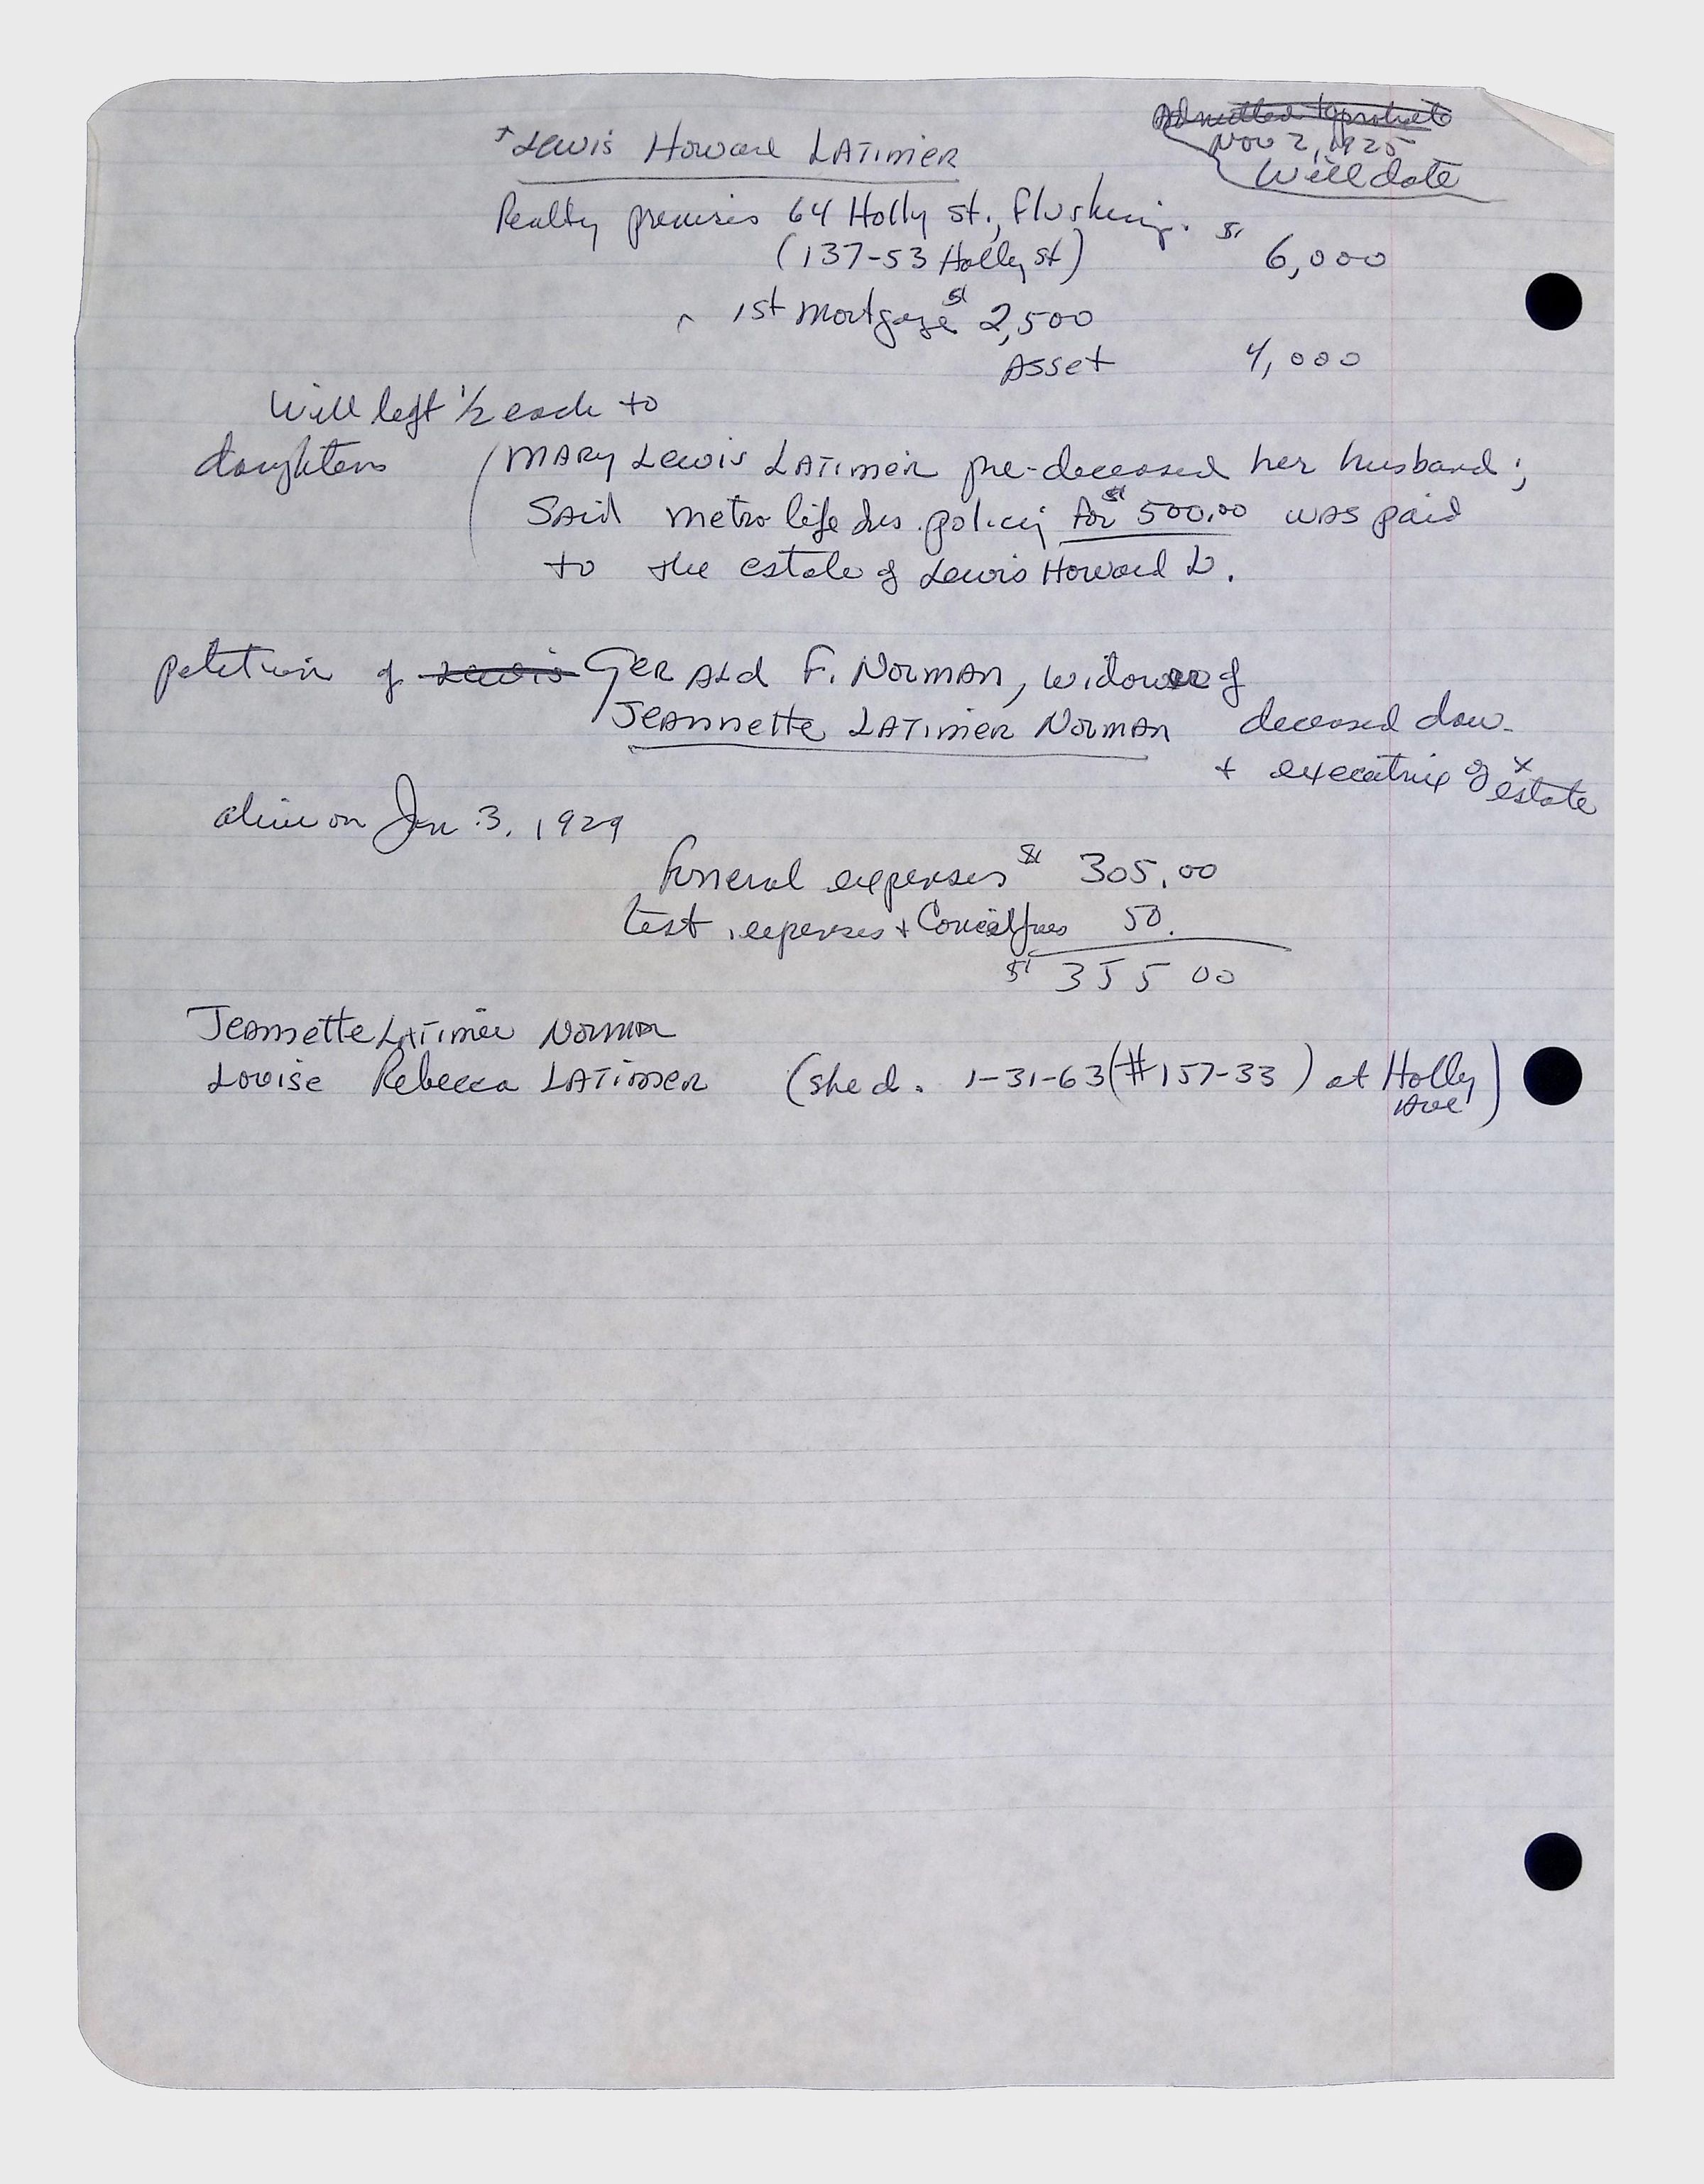 Admitted to probate
Nov 2, 1925
Will date
Lewis Howard LATIMER
Realty premises 64 Holly St., Flushing. $ 6,000
(137-53 Holly St)
1st Mortgage $ 2,500
Asset 4,000
Will left 1/2 each to
daughters (MARY Lewis LATIMER pre-deceased her husband;
Said metro life Ins. policy for $ 500.00 was paid
to the estate of Lewis Howard L.
petition of Lewis GERALd F. NORMAN, widower of
JEANNette LATIMER NORMAN deceased dau.
+ executrix of x
estate
alive on Jan 3, 1929
funeral expenses $ 305.00
test. expenses + Councel fees 50.
$ 355 00
Jeannette LATIMER NORMAN
Louise Rebecca LATIMER (she d. 1-31-63 (#157-33) at Holly
Ave)